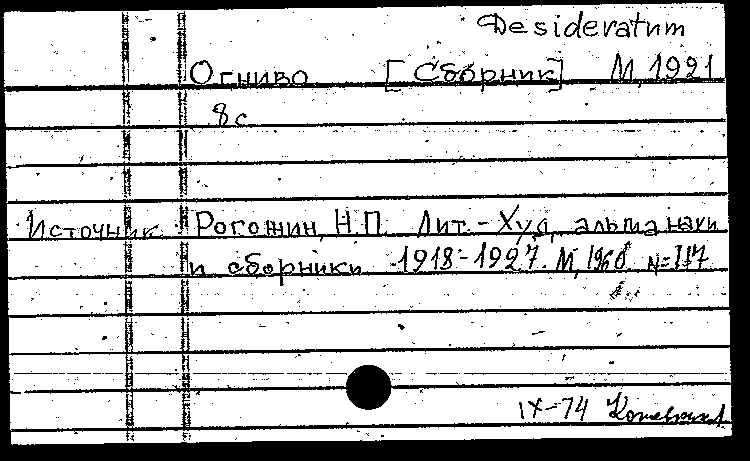 Desideratum
Огниво [Сборник] М, 1921
8 с
Источник Рогожин, Н.П. Лит.-Худ. альманахи
и сборники 1918-1927. М, 1960 №=117
IX-74